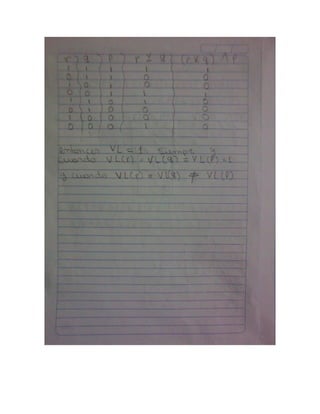 r q p r ⊻ q (r ⊻ q) ∧ p
1 1 1 1 1
0 1 1 0 0
1 0 1 0 0
0 0 1 1 1
1 1 0 1 0
0 1 0 0 0
1 0 0 0 0
0 0 0 1 0
entonces VL = 1 siempre y
cuando VL(r) = VL(q) = VL(p) = 1
y cuando VL(r) = VL(q) ≠ VL(p)